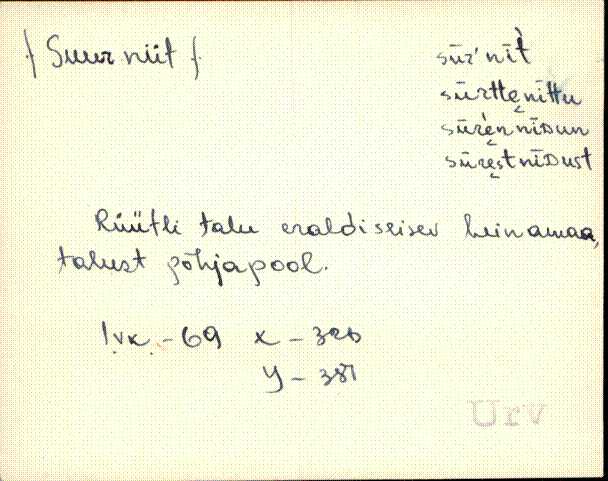 { Suur niit }
sūŕnīt̀
sūrtte̬nīttu
sūre̬n nīDun
sūre̬st nīDust
Rüütli talu eraldiseisev heinamaa,
talust põhjapool.
Ivk. - 69 x - 326
y - 381
Urv